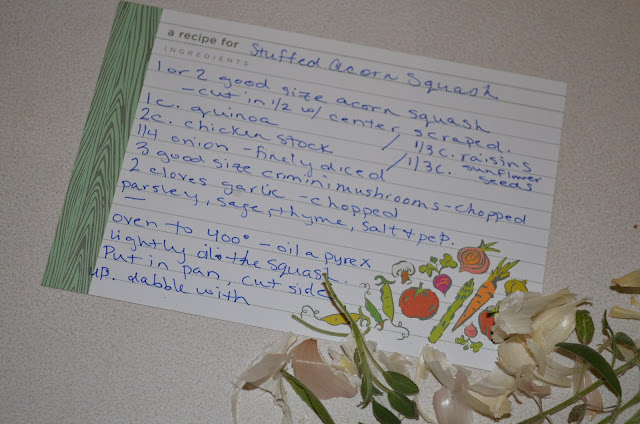 a recipe for Stuffed Acorn Squash
INGREDIENTS
1 or 2 good size acorn squash
- cut in 1/2 w/ center scraped.
1c. quinoa / 1/3 c. raisins
2c. chicken stock / 1/3 c. sunflower seeds
1/4 onion - finely diced
3 good size crimini mushrooms - chopped
2 cloves garlic - chopped
parsley, sage, thyme, salt & pep.
—
oven to 400° - oil a pyrex
lightly oil the squash.
Put in pan, cut side
up. dabble with